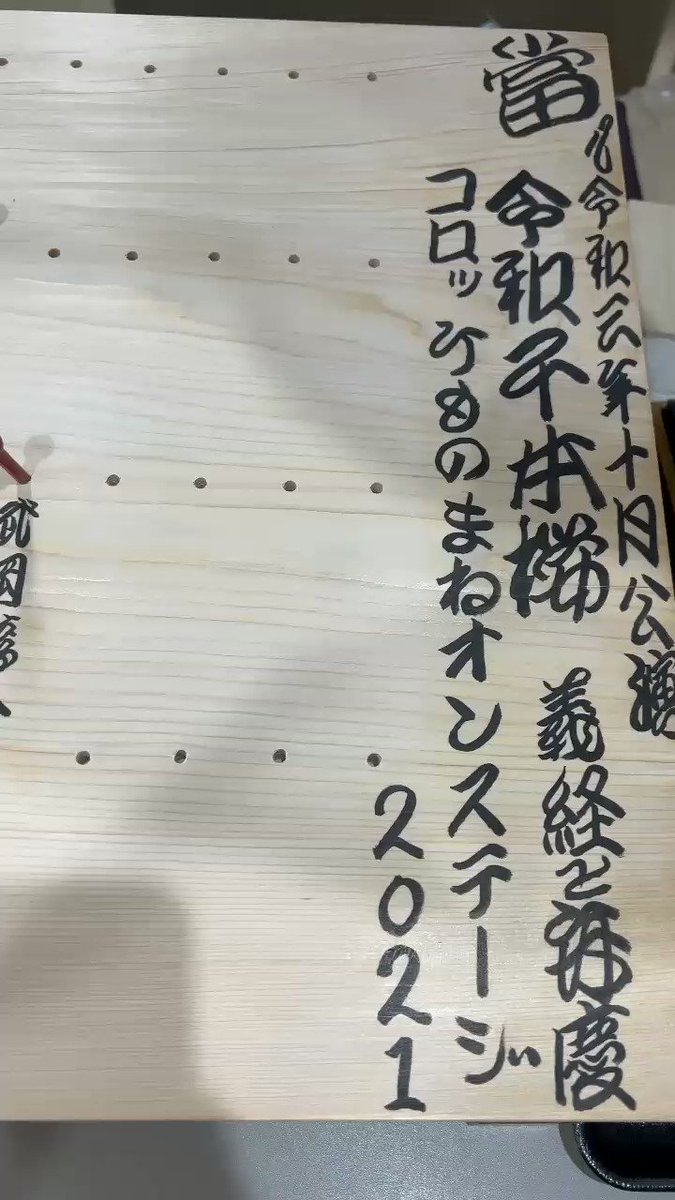 當
令和三年十月公演
令和千本桜 義経と辨慶
コロッケものまねオンステージ
2021
武田